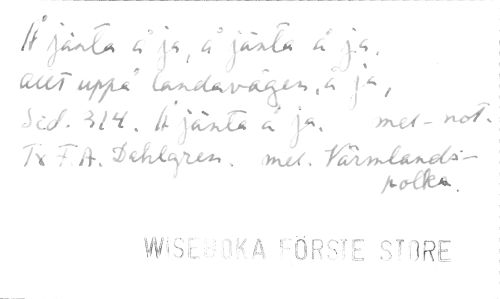 Å jänta å ja, å jänta å ja.
allt uppå landavägen, å ja,
Sid. 314. Å jänta å ja. mel-not.
Tx F.A. Dahlgren. mel. Värmlands-
polka.
WISEBOKA FÖRSTE STORE